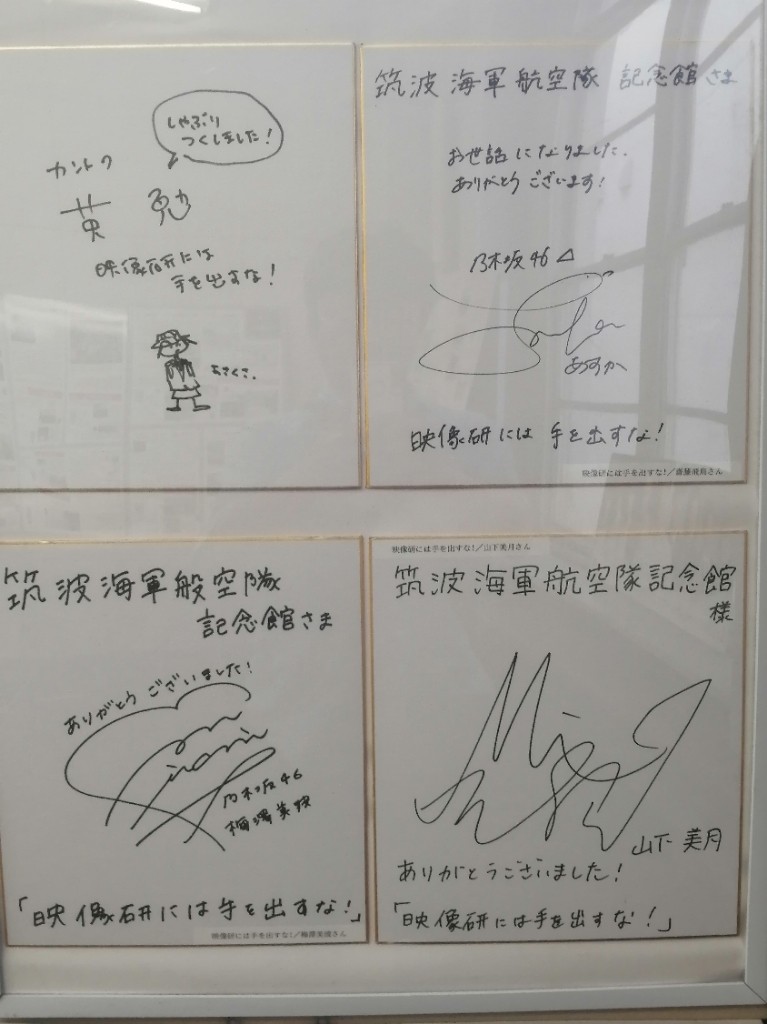 しゃぶり
つくしました!
カントク
英 勉
映像研には
手を出すな!
あさくさ。
筑波海軍航空隊 記念館さま
お世話になりました。
ありがとうございます!
乃木坂46
あすか
映像研には 手を出すな!
映像研には手を出すな!/齋藤飛鳥さん
筑波海軍般空隊
記念館さま
ありがとうございました!
乃木坂46
梅澤美波
「映像研には手を出すな!」
映像研には手を出すな!/梅澤美波さん
映像研には手を出すな!/山下美月さん
筑波海軍航空隊記念館
様
山下美月
ありがとうございました!
「映像研には手を出すな!」